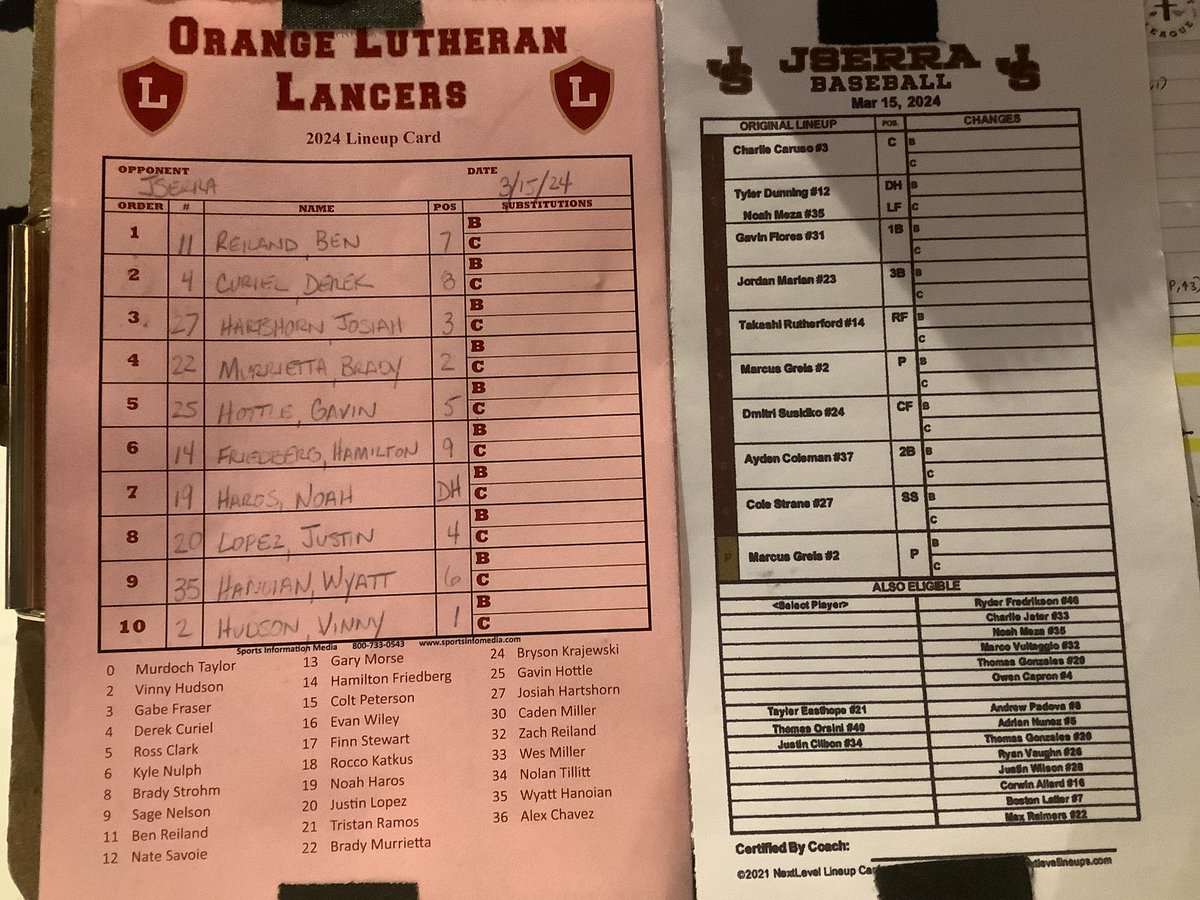 ORANGE LUTHERAN
LANCERS
L L
2024 Lineup Card
OPPONENT DATE
JSERRA 3/15/24
ORDER # NAME POS SUBSTITUTIONS
1 11 REILAND, BEN 7 B C
2 4 CURIEL, DEREK 8 B C
3 27 HARTSHORN, JOSIAH 3 B C
4 22 MURRIETTA, BRADY 2 B C
5 25 HOTTLE, GAVIN 5 B C
6 14 FRIEDBERG, HAMILTON 9 B C
7 19 HAROS, NOAH DH B C
8 20 LOPEZ, JUSTIN 4 B C
9 35 HANOIAN, WYATT 6 B C
10 2 HUDSON, VINNY 1 B C
Sports Information Media 800-733-0543 www.sportsinfomedia.com
0 Murdoch Taylor
2 Vinny Hudson
3 Gabe Fraser
4 Derek Curiel
5 Ross Clark
6 Kyle Nulph
8 Brady Strohm
9 Sage Nelson
11 Ben Reiland
12 Nate Savoie
13 Gary Morse
14 Hamilton Friedberg
15 Colt Peterson
16 Evan Wiley
17 Finn Stewart
18 Rocco Katkus
19 Noah Haros
20 Justin Lopez
21 Tristan Ramos
22 Brady Murrietta
24 Bryson Krajewski
25 Gavin Hottle
27 Josiah Hartshorn
30 Caden Miller
32 Zach Reiland
33 Wes Miller
34 Nolan Tillitt
35 Wyatt Hanoian
36 Alex Chavez
JS JSERRA JS
BASEBALL
Mar 15, 2024
ORIGINAL LINEUP POS. CHANGES
Charlie Caruso #3 C B C
Tyler Dunning #12 DH B
Noah Meza #35 LF C
Gavin Flores #31 1B B C
Jordan Marian #23 3B B C
Takashi Rutherford #14 RF B C
Marcus Greis #2 P B C
Dmitri Susidko #24 CF B C
Ayden Coleman #37 2B B C
Cole Strane #27 SS B C
P Marcus Greis #2 P B C
ALSO ELIGIBLE
<Select Player> Ryder Fredrikson #46
Charlie Jeter #33
Noah Meza #35
Marco Vultaggio #32
Thomas Gonzales #29
Owen Capron #4
Tayler Easthope #21 Andrew Padova #8
Thomas Orsini #40 Adrian Nunez #5
Justin Clibon #34 Thomas Gonzales #26
Ryan Vaughn #26
Justin Wilson #28
Corwin Allard #16
Boston Latler #7
Max Reimers #22
Certified By Coach:
©2021 NextLevel Lineup Car